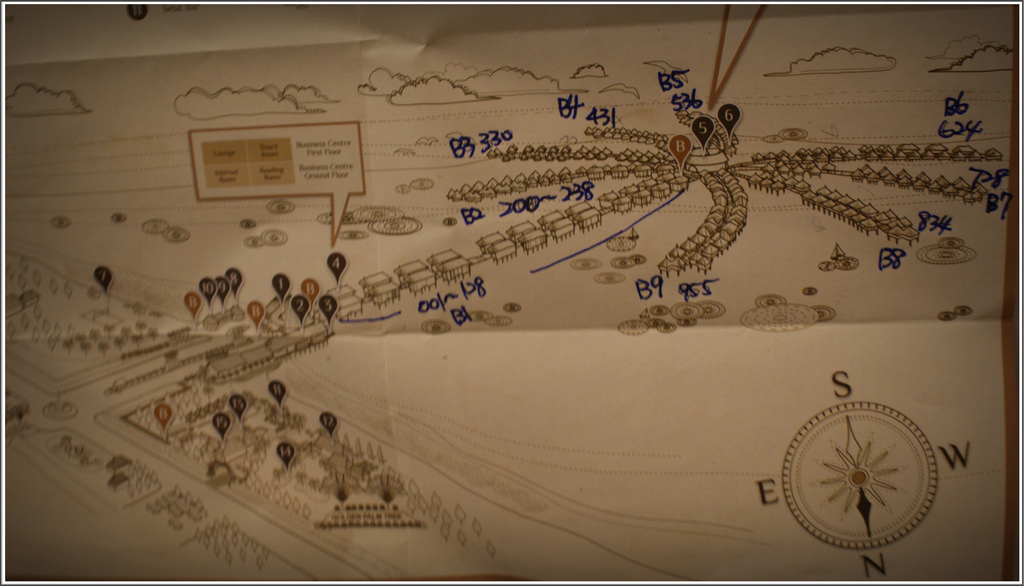 11 Seat Bar
B5
536
B4 431
B6
624
B3 330
Lounge
Board Room
Business Centre First Floor
Internet Room
Reading Room
Business Centre Ground Floor
5
6
B
728
B7
B2 200~238
834
B8
B9 955
001~128
B1
7
4
10
9
8
1
B
B
B
2
3
11
12
14
GOLDEN PALM TREE
S
W
E
N